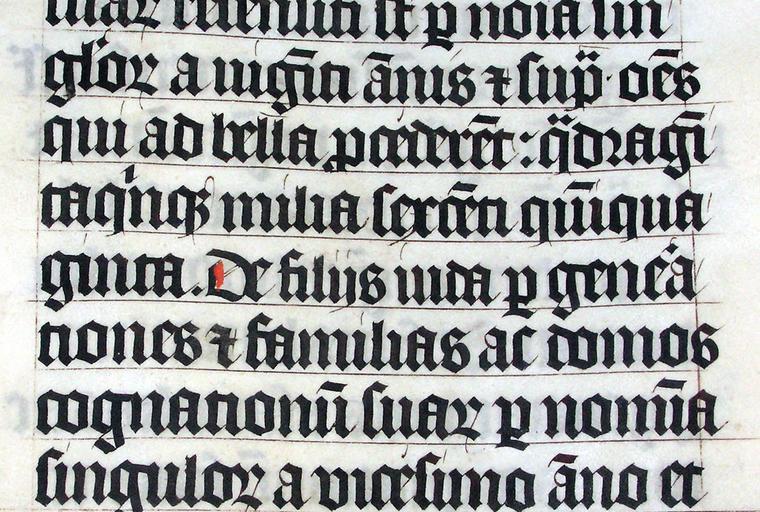 suaꝝ recensiti sūt ꝑ noīa sin
gl'oꝝ a uigīti ānis ⁊ sup̄· oēs
qui ad bella ꝓcederēt: qͣdragī
taqͥnqꝫ milia sexcēti quīqua
ginta. De filijs iuda ꝑ geneͣa
tiones ⁊ familias ac domos
cognationū suaꝝ ꝑ nomīa
singuloꝝ a uicesimo āno et